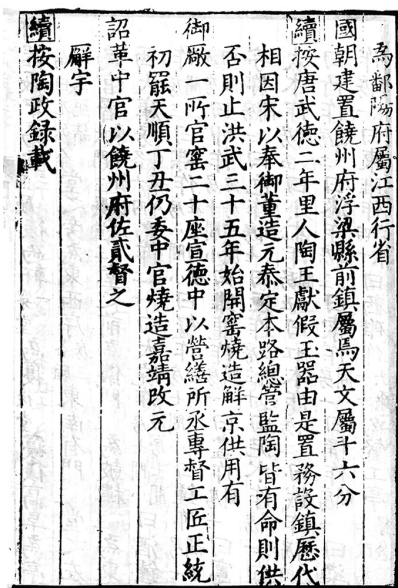 為鄱陽府屬江西行省
國朝建置饒州府浮梁縣前鎮屬焉天文屬斗六分
續按唐武德二年里人陶玉獻假玉器由是置務設鎮歷代
相因宋以奉御董造元泰定本路總管監陶皆有命則供
否則止洪武三十五年始開窰燒造解京供用有
御厰一所官窰二十座宣德中以營繕所丞專督工匠正統
初罷天順丁丑仍委中官燒造嘉靖改元
詔革中官以饒州府佐貳督之
廨宇
續按陶政録載